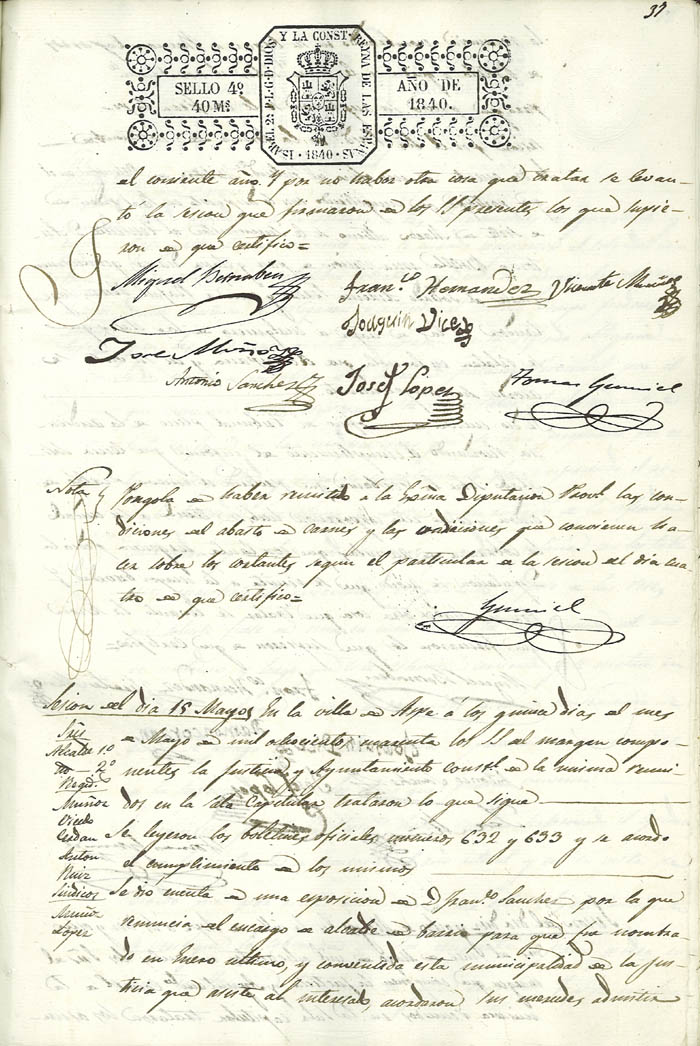 37
ISABEL 2ª P.L.G.D.DIOS Y LA CONST. REYNA DE LAS ESPAÑAS · 1840 ·
SELLO 4º
40 Ms
AÑO DE
1840.
el corriente año. Y por no haber otra cosa que tratar se levan-
tó la sesion que firmaron de los SS presentes los que supie-
ron de que certifico=
Miguel Bernabeu
Franco Hernandez
Vicente Muñoz
Joaquin Vicedo
Jose Muñoz
Antonio Sanchez
José Lopez
Tomas Gumiel
Nota
Pongola de haber remitido a la Exma Diputacion Provl las con-
diciones del abasto de carnes y las condiciones que convienen ha-
cer sobre los cortantes segun el particular de la sesion del dia cua-
tro de que certifico=
Gumiel
Sesion del dia 15 Mayo
En la villa de Aspe á los quince dias del mes
de Mayo de mil ochocientos cuarenta los SS del margen compo-
nentes la Justicia y Ayuntamiento constl de la misma reuni-
dos en la Sala Capitular trataron lo que sigue
Sres
Alcalde 1º
do 2º
Regid.
Muñoz
Vicedo
Cerdan
Anton
Ruiz
Sindicos
Muñoz
Lopez
Se leyeron los boletines oficiales numeros 632 y 633 y se acordo
el cumplimiento de los mismos
Se dio cuenta de una esposicion de D. Franco Sanchez por la que
renuncia el encargo de alcalde de barrio para que fue nombra-
do en Enero ultimo, y convencida esta municipalidad de la jus-
ticia que asiste al interesado, acordaron sus mercedes admitir